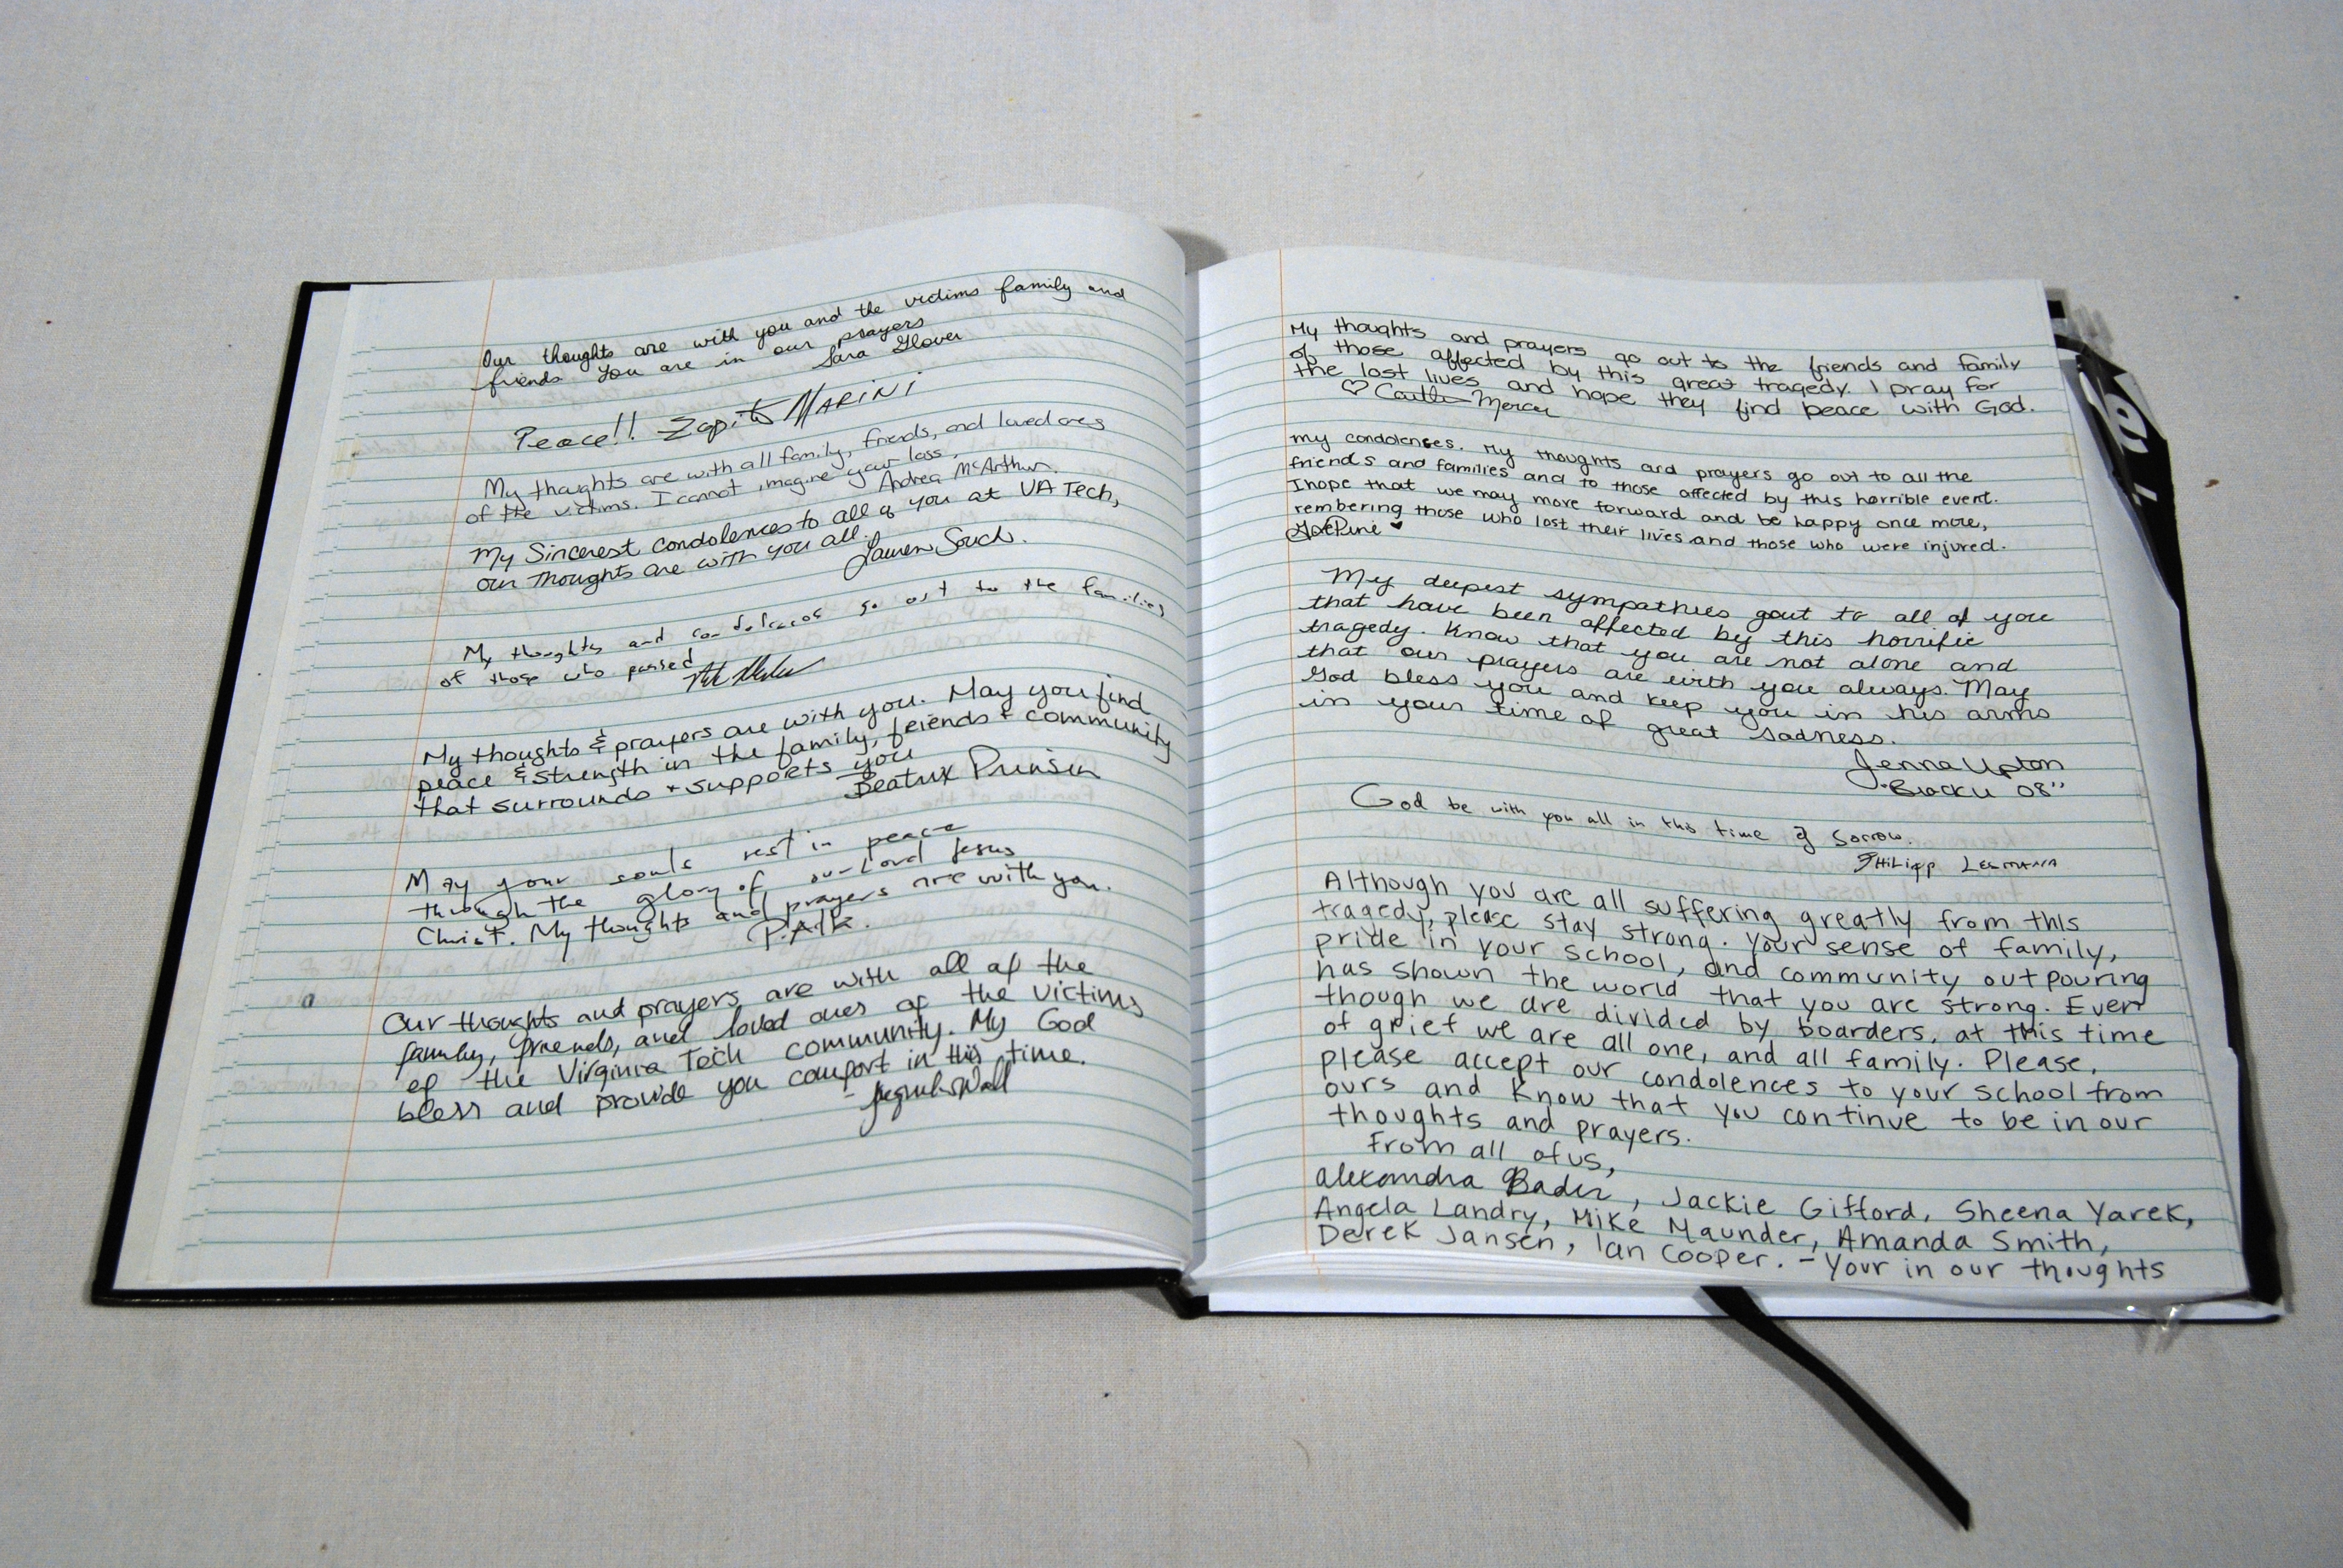 Our thoughts are with you and the victims family and
friends You are in our prayers
Sara Glover
Peace!! MARINI
My thoughts are with all family, friends, and loved ones
of the victims. I cannot imagine your loss.
Andrea McArthur.
My Sincerest condolences to all of you at VA Tech,
our thoughts are with you all.
Lauren
My thoughts and condolences go out to the families
of those who passed
My thoughts & prayers are with you. May you find
peace & strength in the family, friends + community
that surrounds + supports you
Beatrix
May your souls rest in peace
through the glory of our Lord Jesus
Christ. My thoughts and prayers are with you.
Our thoughts and prayers are with all of the
family, friends, and loved ones of the victims
of the Virginia Tech community. My God
bless and provide you comfort in this time.
My thoughts and prayers go out to the friends and family
of those affected by this great tragedy. I pray for
the lost lives and hope they find peace with God.
♡ Caitlin Mercer
my condolences. My thoughts and prayers go out to all the
friends and families and to those affected by this horrible event.
I hope that we may move forward and be happy once more,
rembering those who lost their lives and those who were injured.
My deepest sympathies gout to all of you
that have been affected by this horrific
tragedy. Know that you are not alone and
that our prayers are with you always. May
God bless you and keep you in his arms
in your time of great sadness.
Jenna Upton
"Brock U 08"
God be with you all in this time of Sorrow.
PHilipp
Although you are all suffering greatly from this
tragedy, please stay strong. Your sense of family,
pride in your school, and community outpouring
has shown the world that you are strong. Even
though we are divided by boarders, at this time
of grief we are all one, and all family. Please,
please accept our condolences to your school from
ours and know that you continue to be in our
thoughts and prayers.
From all of us,
Alexandra Bader, Jackie Gifford, Sheena Yarek,
Angela Landry, Mike Maunder, Amanda Smith,
Derek Jansen, Ian Cooper. - Your in our thoughts